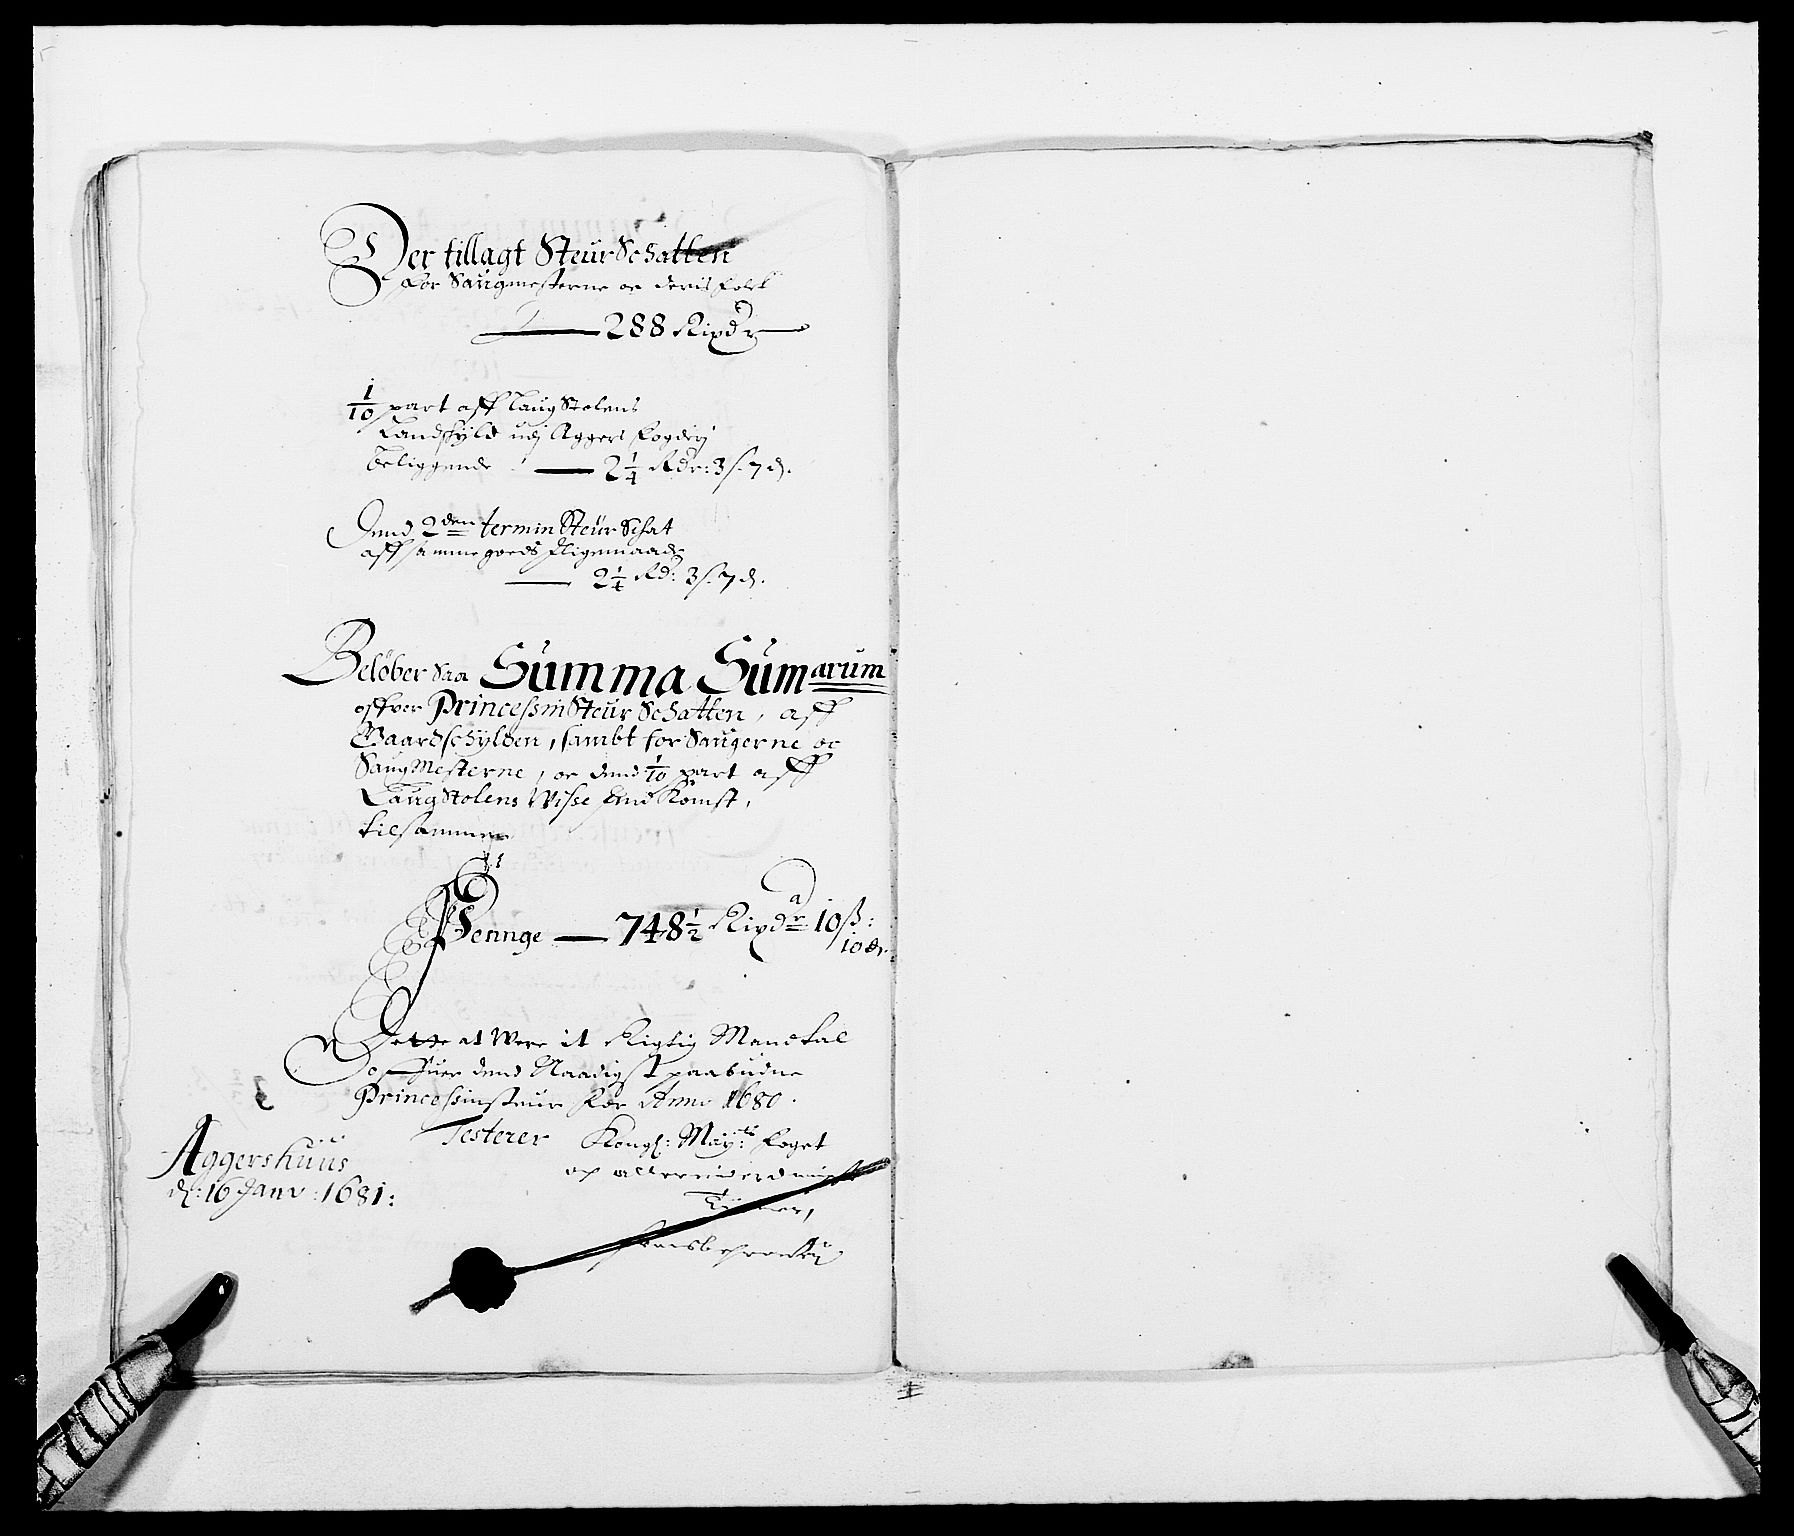 Der tillagt SteurSchatten
for Saugmesterne oc deris folck
288 Rixdr
1/10 part aff LaugStolens
Landschyld udj Aggers fogderj
beliggende 2 1/4 Rdr: 3 s. 7 d.
Dend 2den termin SteurSchat
aff samme goeds sligemaade
2 1/4 Rd: 3 s. 7 d.
Beløber saa Summa Sumarum
offver PrincessinSteurSchatten, aff
Gaardschylden, sambt for Saugerne oc
SaugMesterne, oc dend 1/10 part aff
LaugStolens Wisse Ind Komst,
tilsammen
Pennge 748 1/2 Rixdr 10 ß:
10 dr
Dette at Were it Rigtig Mandtal
ofuer dend Naadigst paabudne
Princessinsteur for Anno 1680.
Testerer Kongl: May:ts foget
Aggershuus
d: 16 Janv: 1681: